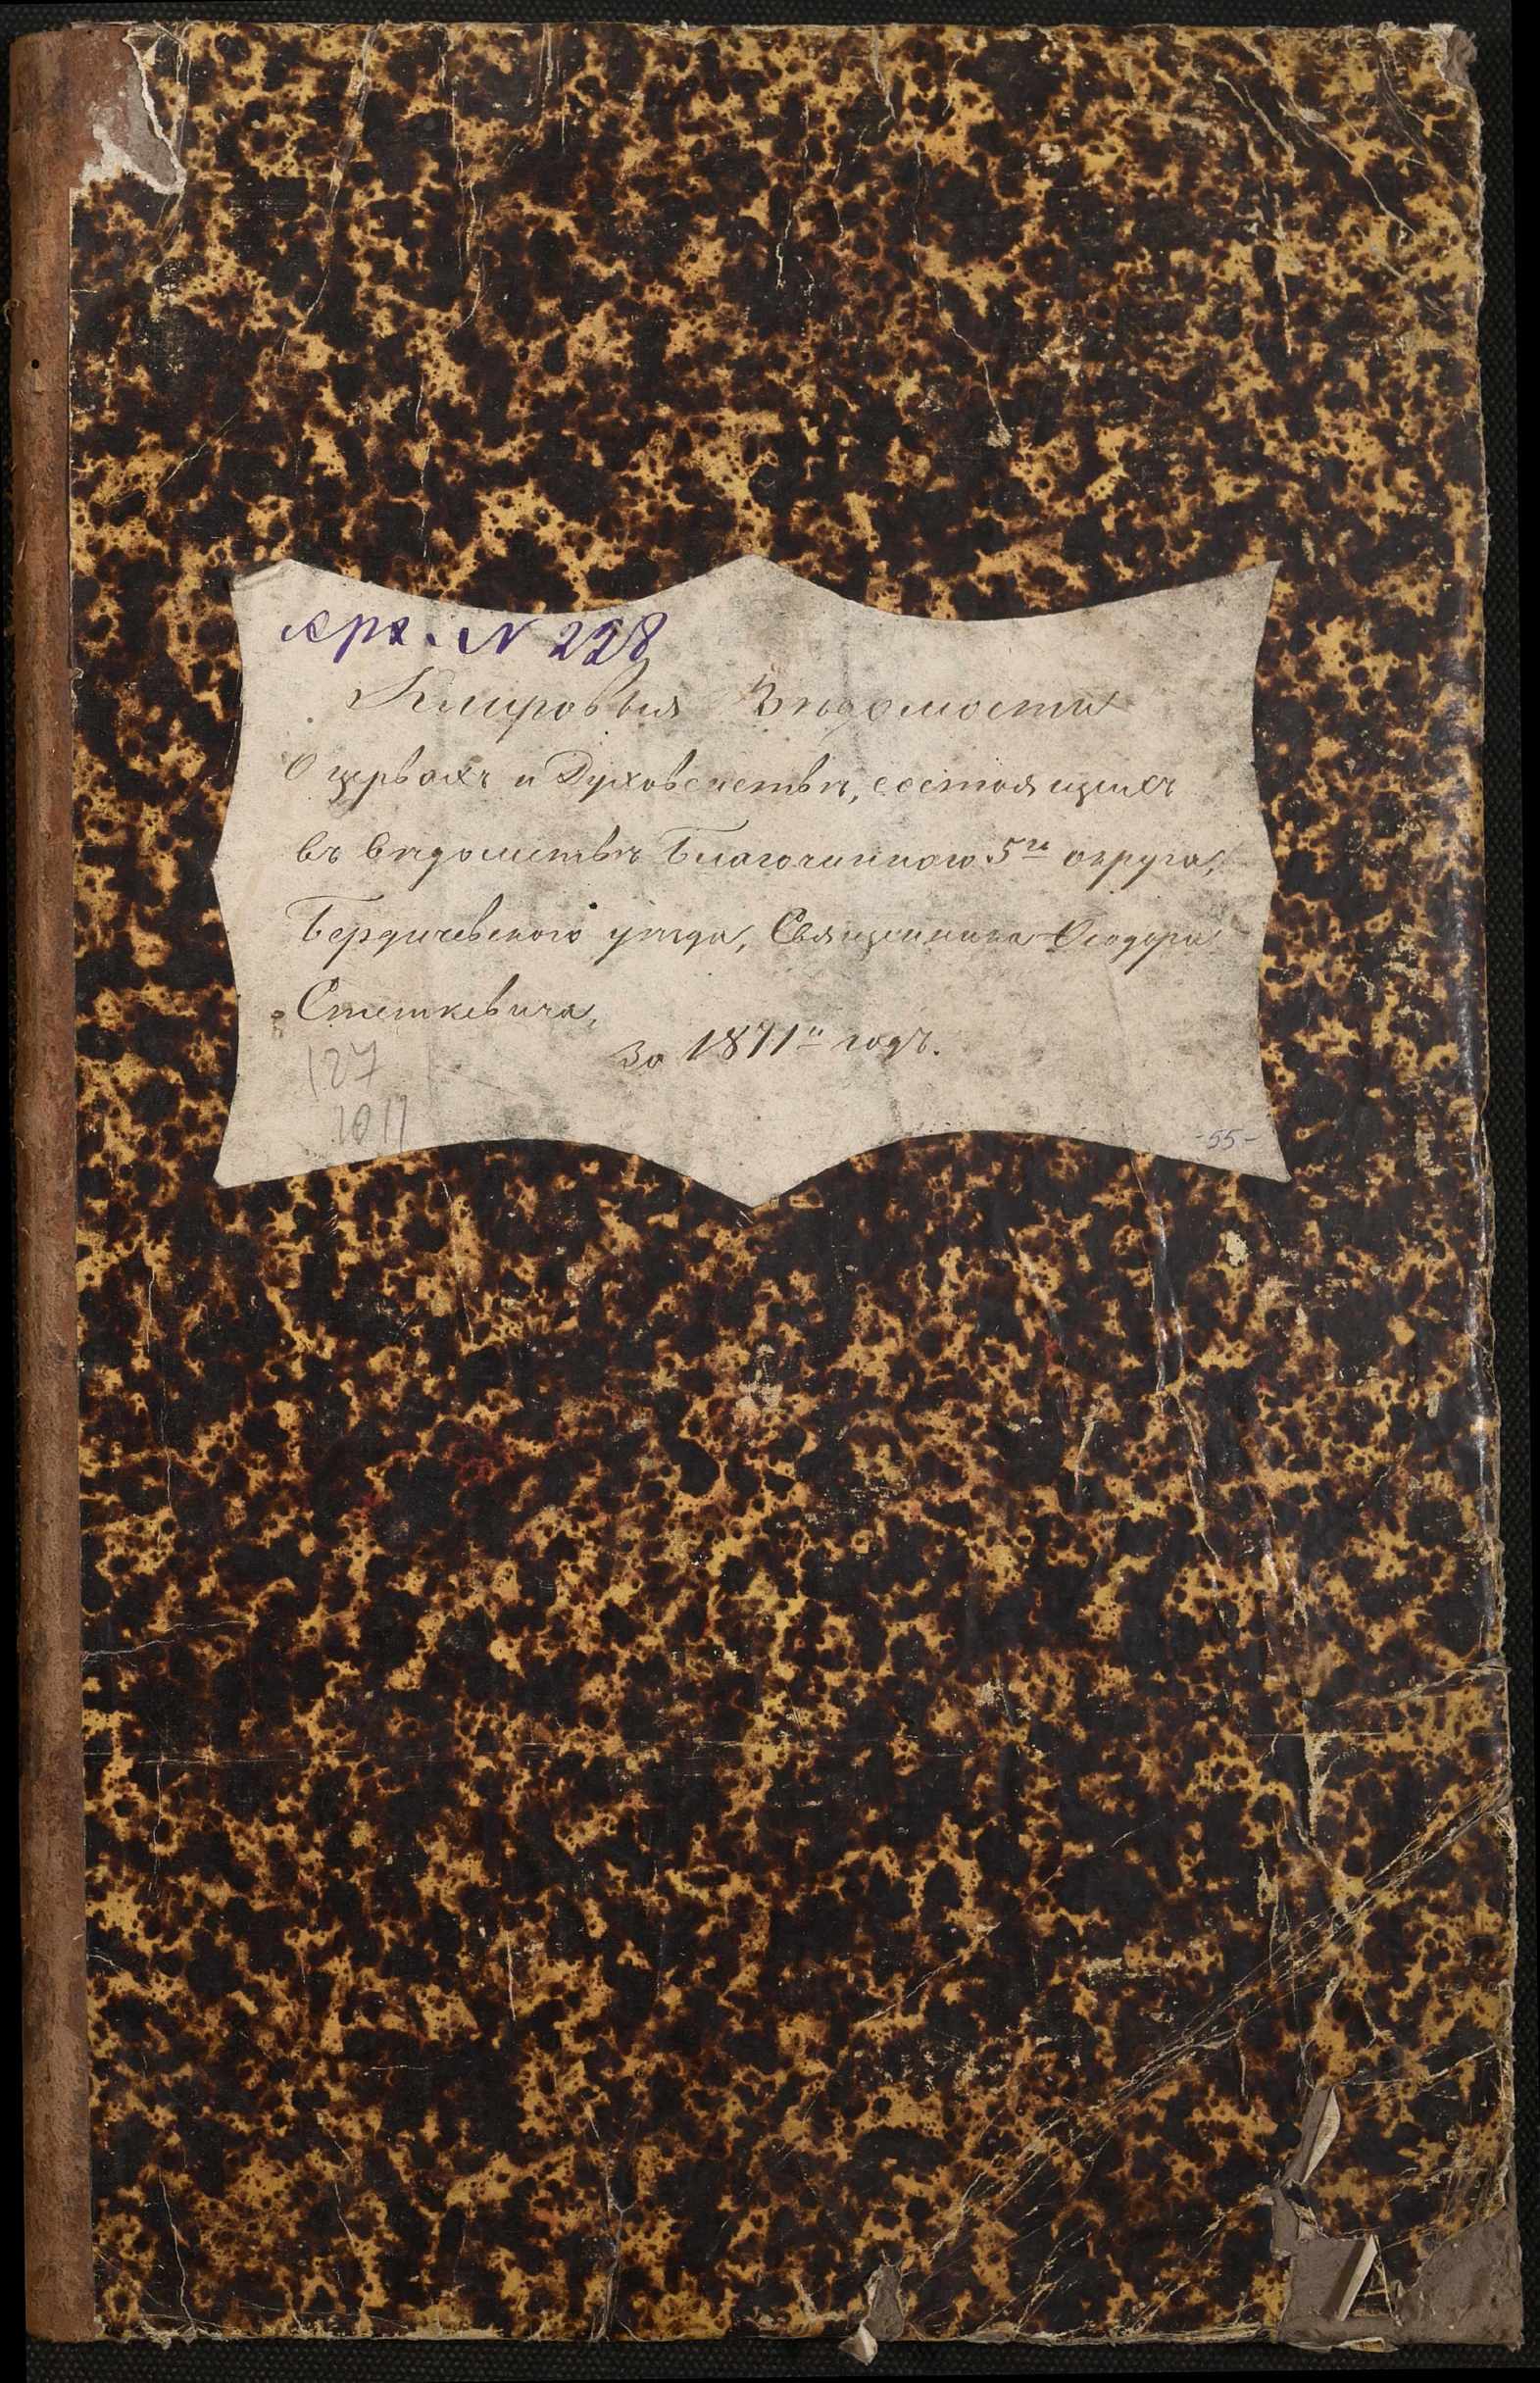 арх. N 228
Клировыя Вѣдомости
О церквахъ и Духовенствѣ, состоящихъ
въ вѣдомствѣ Благочиннаго 5го округа,
Бердичевскаго уѣзда, Священника Ѳеодора
Стешкевича,
За 1871й годъ.
127
1011
-55-